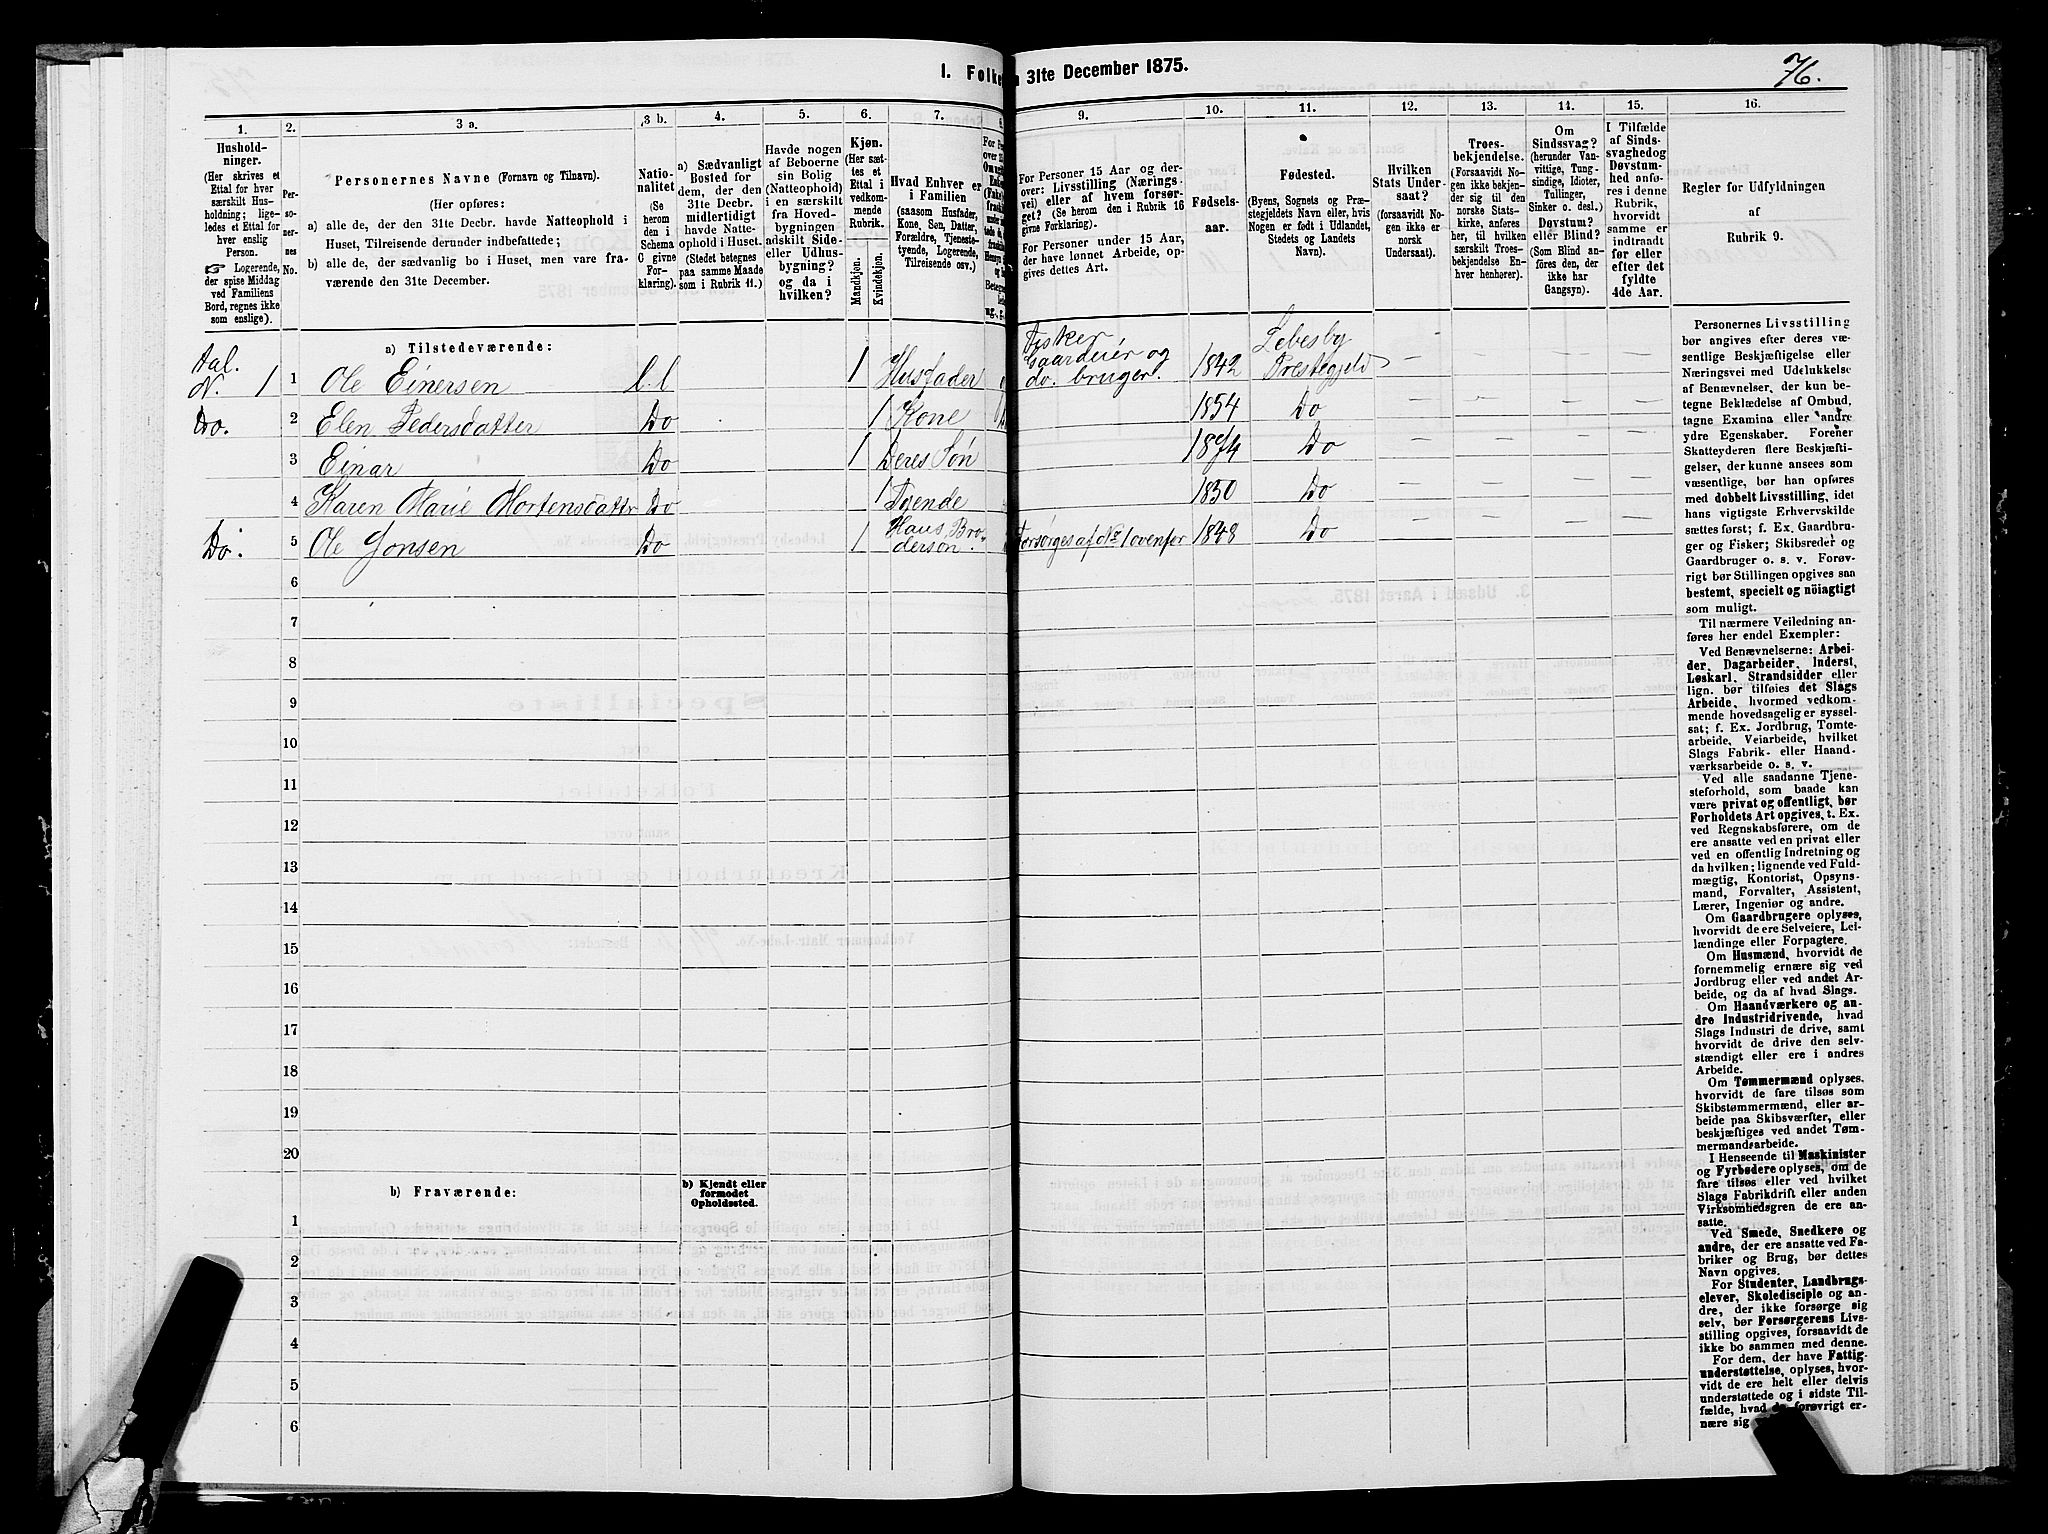 76.
I. Folke
n 31te December 1875.
1. 2. 3 a. 3 b. 4. 5. 6. 7. 8. 9. 10. 11. 12. 13. 14. 15. 16.
Hushold-
ninger.
(Her skrives et
Ettal for hver
særskilt Hus-
holdning; lige-
ledes et Ettal for
hver enslig
Person.
☞ Logerende,
der spise Middag
ved Familiens
Bord, regnes ikke
som enslige).
Per-
so-
ner-
nes
No.
Personernes Navne (Fornavn og Tilnavn).
(Her opføres:
a) alle de, der den 31te Decbr. havde Natteophold i
Huset, Tilreisende derunder indbefattede;
b) alle de, der sædvanlig bo i Huset, men vare fra-
værende den 31te December.
Natio-
nalitet
(Se
herom
den i
Schema
C givne
For-
klaring).
a) Sædvanligt
Bosted for
dem, der den
31te Decbr.
midlertidigt
havde Natte-
ophold i Huset.
(Stedet betegnes
paa samme Maade
som i Rubrik 11.)
Havde nogen
af Beboerne
sin Bolig
(Natteophold)
i en særskilt
fra Hoved-
bygningen
adskilt Side-
eller Udhus-
bygning?
og da i
hvilken?
Kjøn.
(Her sæt-
tes et
Ettal i
vedkom-
mende
Rubrik.
Mandkjøn.
Kvindekjøn.
Hvad Enhver er
i Familien
(saasom Husfader,
Kone, Søn, Datter,
Forældre, Tjeneste-
tyende, Logerende,
Tilreisende osv.)
For Personer 15 Aar og der-
over: Livsstilling (Nærings-
vei) eller af hvem forsør-
get? (Se herom den i Rubrik 16
givne Forklaring).
For Personer under 15 Aar,
der have lønnet Arbeide, op-
gives dettes Art.
Fødsels-
aar.
Fødested.
(Byens, Sognets og Præ-
stegjeldets Navn eller, hvis
Nogen er født i Udlandet,
Stedets og Landets
Navn).
Hvilken
Stats Under-
saat?
(forsaavidt No-
gen ikke er
norsk
Undersaat).
Troes-
bekjendelse.
(Forsaavidt No-
gen ikke bekjen-
der sig til den
norske Stats-
kirke, anføres
her, til hvilken
særskilt Troes-
bekjendelse En-
hver henhører).
Om
Sindssvag?
(herunder Van-
vittige, Tung-
sindige, Idioter,
Tullinger,
Sinker o. desl.)
Døvstum?
eller Blind?
(Som Blind an-
føres den, der
ikke har
Gangsyn).
I Tilfælde
af Sinds-
svaghedog
Døvstum-
hed anfø-
res i denne
Rubrik,
hvorvidt
samme er
indtraadt
før eller
efter det
fyldte
4de Aar.
Regler for Udfyldningen
af
Rubrik 9.
a) Tilstedeværende:
N. 1 1 Ole Einersen 1 Husfader Fisker Gaardeier og do. bruger. 1842 Lebesby Prestegjeld — — — —
Do. 2 Elen Pedersdatter Do 1 Kone 1854 Do — — — —
3 Einar Do 1 Deres Søn 1874 Do — — — —
4 Karen Marie Mortensdatter Do 1 Tyende 1850 Do — — — —
Do. 5 Ole Jonsen Do 1 Hans Bro-
derson. Forsørges af No 1 ovenfor 1848 Do — — — —
6
7
8
9
10
11
12
13
14
15
16
17
18
19
20
b) Fraværende:
b) Kjendt eller
formodet
Opholdssted.
1
2
3
4
5
6
Personernes Livsstilling
bør angives efter deres væ-
sentlige Beskjæftigelse eller
Næringsvei med Udelukkelse
af Benævnelser, der kun be-
tegne Beklædelse af Ombud,
tagne Examina eller andre
ydre Egenskaber. Forener
Skatteyderen flere Beskjæfti-
gelser, der kunne ansees som
væsentlige, bør han opføres
med dobbelt Livsstilling, idet
hans vigtigste Erhvervskilde
sættes først; f. Ex. Gaardbru-
ger og Fisker; Skibsreder og
Gaardbruger o. s. v. Forøv-
rigt bør Stillingen opgives saa
bestemt, specielt og nöiagtigt
som muligt.
Til nærmere Veiledning an-
føres her endel Exempler:
Ved Benævnelserne: Arbei-
der, Dagarbeider, Inderst,
Løskarl, Strandsidder eller
lign. bør tilføies det Slags
Arbeide, hvormed vedkom-
mende hovedsagelig er syssel-
sat; f. Ex. Jordbrug, Tomte-
arbeide, Veiarbeide, hvilket
Slags Fabrik- eller Haand-
værksarbeide o. s. v.
Ved alle saadanne Tjene-
steforhold, som baade kan
være privat og offentligt, bør
Forholdets Art opgives, t. Ex.
ved Regnskabsførere, om de
ere ansatte ved en privat eller
ved en offentlig Indretning og
da hvilken; lignende ved Fuld-
mægtig, Kontorist, Opsyns-
mand, Forvalter, Assistent,
Lærer, Ingeniør og andre.
Om Gaardbrugere oplyses,
hvorvidt de ere Selveiere, Lei-
lændinge eller Forpagtere.
Om Husmænd, hvorvidt de
fornemmelig ernære sig ved
Jordbrug eller ved andet Ar-
beide, og da af hvad Slags.
Om Haandværkere og an-
dre Industridrivende, hvad
Slags Industri de drive, samt
hvorvidt de drive den selv-
stændigt eller ere i andres
Arbeide.
Om Tømmermænd oplyses,
hvorvidt de fare tilsøs som
Skibstømmermænd, eller ar-
beide paa Skibsværfter, eller
beskjæftiges ved andet Tøm-
mermandsarbeide.
I Henseende til Maskinister
og Fyrbødere oplyses, om de
fare tilsøs eller ved hvilket
Slags Fabrikdrift eller anden
Virksomhedsgren de ere an-
satte.
Ved Smede, Snedkere og
andre, der ere ansatte ved Fa-
briker og Brug, bør dettes
Navn opgives.
For Studenter, Landbrugs-
elever, Skoledisciple og an-
dre, der ikke forsørge sig
selv, bør Forsørgerens Livs-
stilling opgives, forsaavidt de
ikke bo sammen med denne.
For dem, der have Fattig-
understøttelse, oplyses, hvor-
vidt de ere helt eller delvis
understøttede og i sidste Til-
fælde, hvad de forøvrigt er-
nære sig